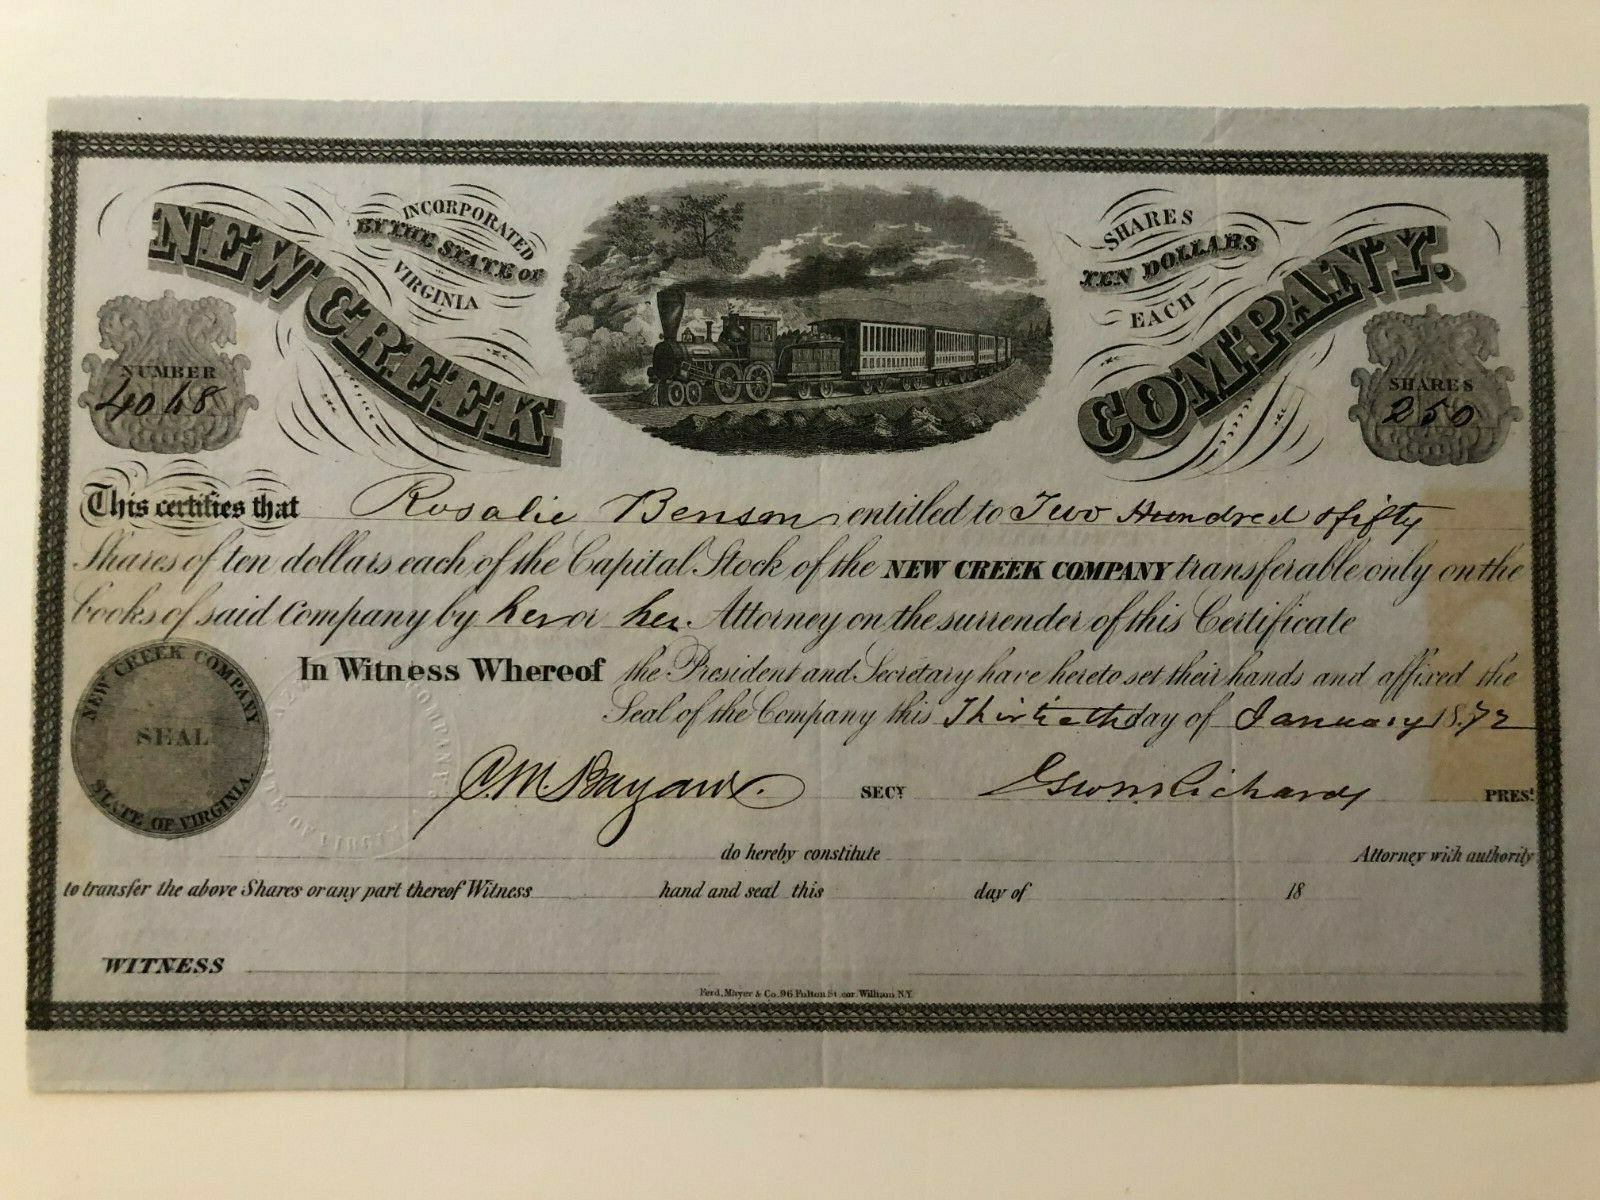 NEW CREEK COMPANY.
INCORPORATED
BY THE STATE OF
VIRGINIA
SHARES
TEN DOLLARS
EACH
NUMBER
4068
SHARES
250
This certifies that Rosalie Benson entitled to Two Hundred & fifty
Shares of ten dollars each of the Capital Stock of the NEW CREEK COMPANY transferable only on the
books of said Company by her or her Attorney on the surrender of this Certificate
In Witness Whereof the President and Secretary have hereto set their hands and affixed the
Seal of the Company this Thirtieth day of January 1872
NEW CREEK COMPANY
SEAL
STATE OF VIRGINIA.
C. M. Bayard. SECY Richards PREST
do hereby constitute Attorney with authority
to transfer the above Shares or any part thereof Witness hand and seal this day of 18
WITNESS
Ferd. Mayer & Co. 96 Fulton St. cor. William N.Y.